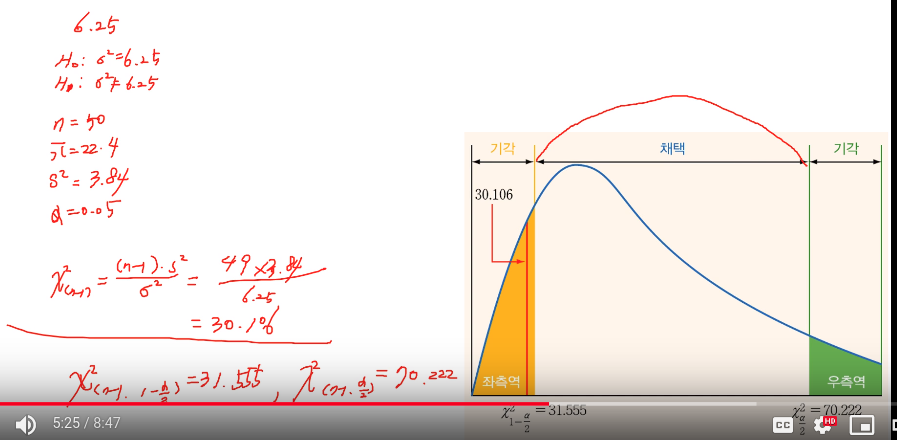 6.25
H₀: σ²=6.25
H₀: σ²≠6.25
n = 50
x̄=22.4
S² = 3.84
α=0.05
χ²(n-1) = (n-1)·s² / σ² = 49×3.84 / 6.25
= 30.106
χ²(n-1, 1-α/2) = 31.555, χ²(n-1, α/2) = 70.222
기각 채택 기각
30.106
좌측역 우측역
χ²1-α/2 = 31.555 χ²α/2 = 70.222
5:25 / 8:47 CC HD